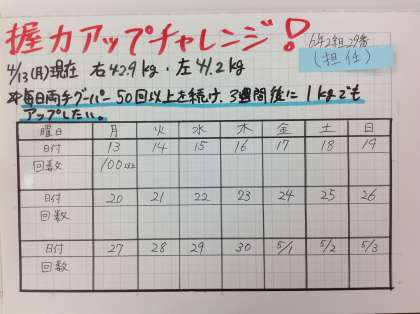 握力アップチャレンジ!
6年2組29番
(担任)
4/13(月)現在 右42.9kg・左41.2kg
毎日両手グーパー50回以上を続け、3週間後に1kgでも
アップしたい。
曜日 月 火 水 木 金 土 日
日付 13 14 15 16 17 18 19
回数 100回
日付 20 21 22 23 24 25 26
回数
日付 27 28 29 30 5/1 5/2 5/3
回数